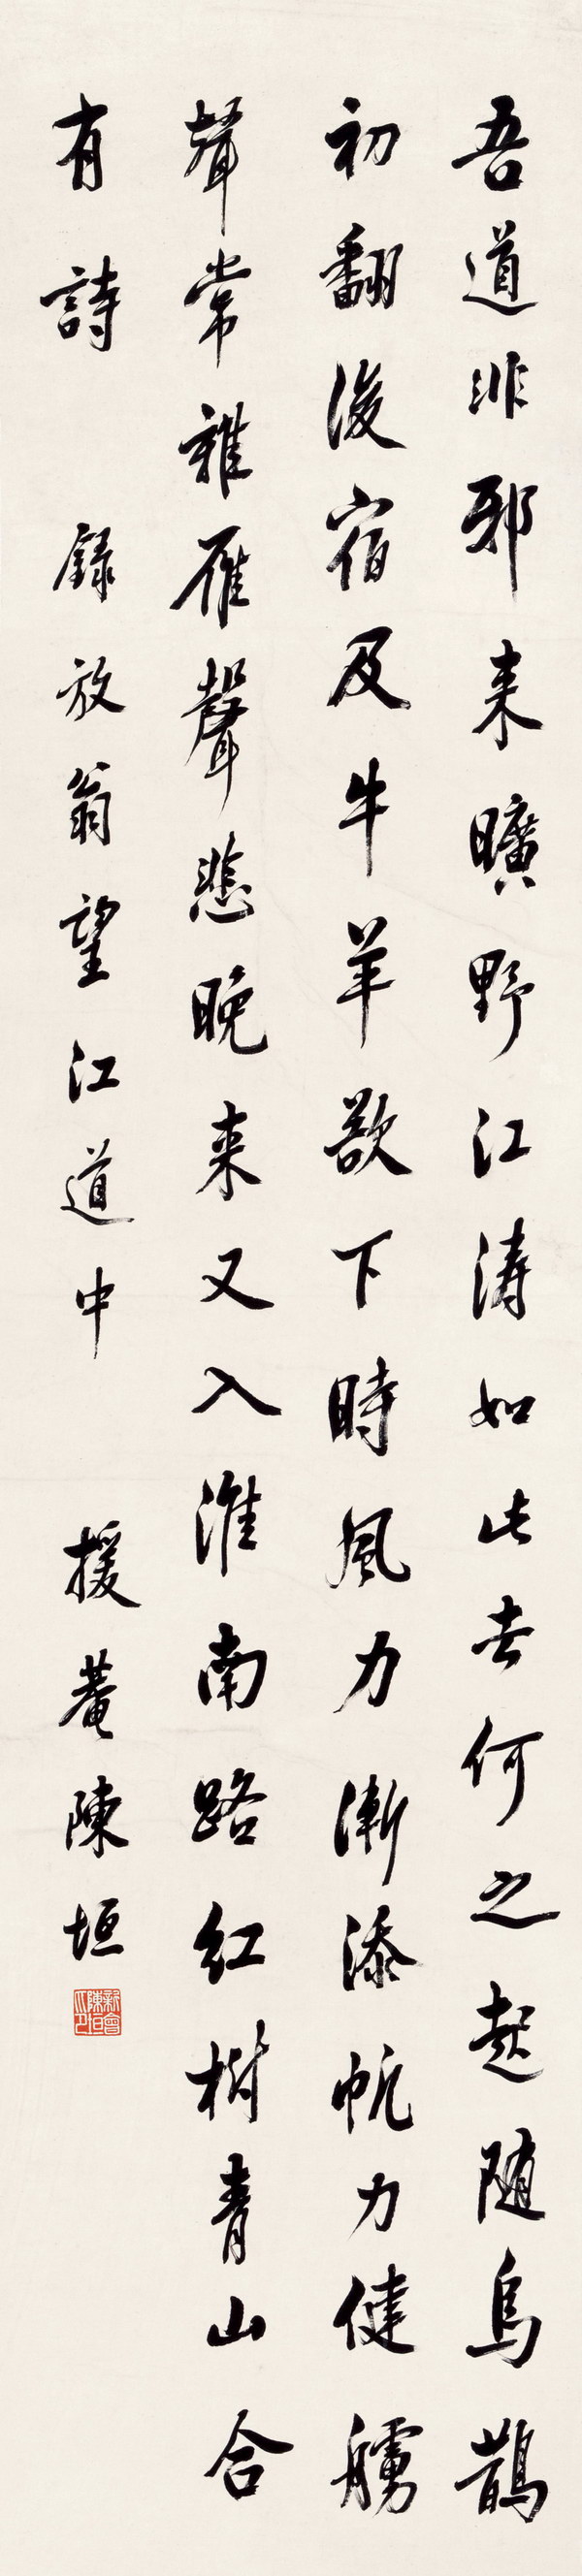 吾道非邪来曠野江涛如此去何之起随烏鵲
初翻後宿及牛羊欲下時風力漸添帆力健艣
聲常雜雁聲悲晚来又入淮南路紅樹青山合
有詩 録放翁望江道中 援菴陳垣
新會陳垣印